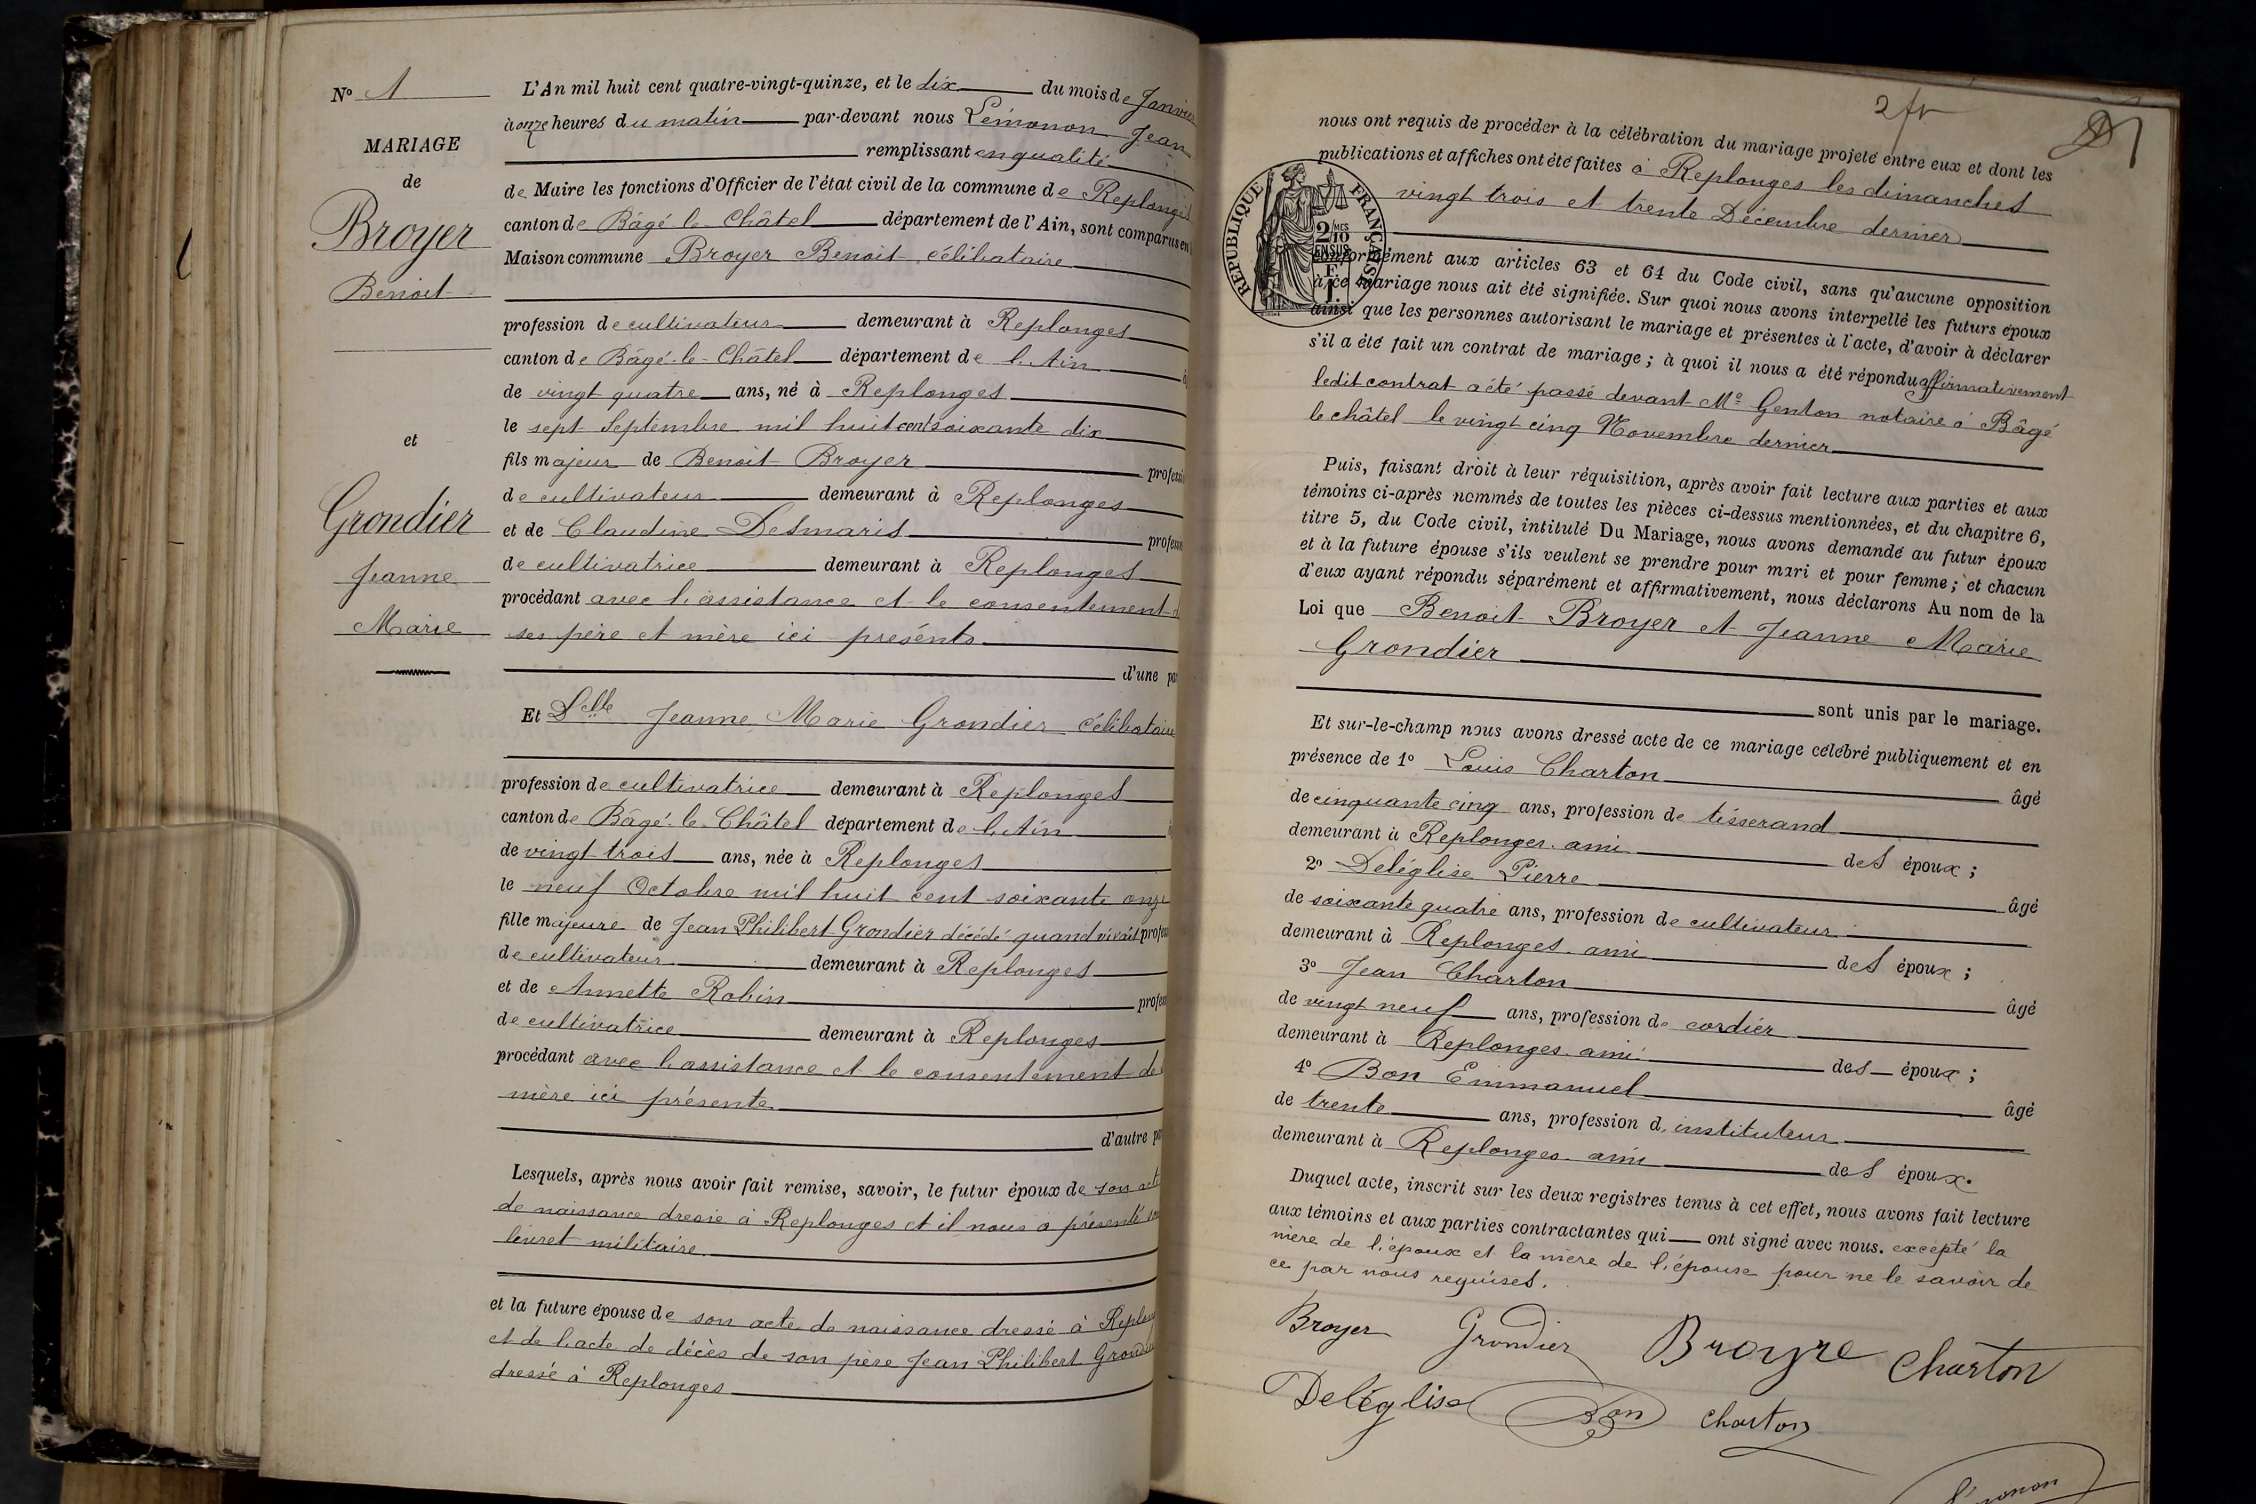 N° 1
MARIAGE
de
Broyer
Benoit
et
Grondier
Jeanne
Marie
L'An mil huit cent quatre-vingt-quinze, et le dix du mois de Janvier
à onze heures du matin par-devant nous Lémonon Jean
remplissant en qualité
de Maire les fonctions d'Officier de l'état civil de la commune de Replonges
canton de Bâgé le Châtel département de l'Ain, sont comparus en
Maison commune Broyer Benoit célibataire
profession de cultivateur demeurant à Replonges
canton de Bâgé-le-Châtel département de l'Ain
de vingt quatre ans, né à Replonges
le sept Septembre mil huit cent soixante dix
fils majeur de Benoit Broyer profession
de cultivateur demeurant à Replonges
et de Claudine Desmaris profession
de cultivatrice demeurant à Replonges
procédant avec l'assistance et le consentement d
ses père et mère ici présents
d'une pa
Et Delle Jeanne Marie Grondier célibataire
profession de cultivatrice demeurant à Replonges
canton de Bâgé-le-Châtel département de l'Ain
de vingt trois ans, née à Replonges
le neuf Octobre mil huit cent soixante onze
fille majeure de Jean Philibert Grondier décédé quand vivait profes
de cultivateur demeurant à Replonges
et de Annette Robin profes
de cultivatrice demeurant à Replonges
procédant avec l'assistance et le consentement de
mère ici présente
d'autre pa
Lesquels, après nous avoir fait remise, savoir, le futur époux de son acte
de naissance dressé à Replonges et il nous a présenté son
livret militaire
et la future épouse de son acte de naissance dressé à Replong
et de l'acte de décès de son père Jean Philibert Grondier
dressé à Replonges
2 fr
nous ont requis de procéder à la célébration du mariage projeté entre eux et dont les
publications et affiches ont été faites à Replonges les dimanches
vingt trois et trente Décembre dernier
RÉPUBLIQUE FRANÇAISE
2/10
EN SUS
conformément aux articles 63 et 64 du Code civil, sans qu'aucune opposition
à ce mariage nous ait été signifiée. Sur quoi nous avons interpellé les futurs époux
ainsi que les personnes autorisant le mariage et présentes à l'acte, d'avoir à déclarer
s'il a été fait un contrat de mariage ; à quoi il nous a été répondu affirmativement
ledit contrat a été passé devant Me Genton notaire à Bâgé
le châtel le vingt cinq Novembre dernier
Puis, faisant droit à leur réquisition, après avoir fait lecture aux parties et aux
témoins ci-après nommés de toutes les pièces ci-dessus mentionnées, et du chapitre 6,
titre 5, du Code civil, intitulé Du Mariage, nous avons demandé au futur époux
et à la future épouse s'ils veulent se prendre pour mari et pour femme ; et chacun
d'eux ayant répondu séparément et affirmativement, nous déclarons Au nom de la
Loi que Benoit Broyer et Jeanne Marie
Grondier
sont unis par le mariage.
Et sur-le-champ nous avons dressé acte de ce mariage célébré publiquement et en
présence de 1° Louis Charton âgé
de cinquante cinq ans, profession de tisserand
demeurant à Replonges ami des époux ;
2° Deléglise Pierre âgé
de soixante quatre ans, profession de cultivateur
demeurant à Replonges ami des époux ;
3° Jean Charton âgé
de vingt neuf ans, profession de cordier
demeurant à Replonges ami des époux ;
4° Bon Emmanuel âgé
de trente ans, profession d'instituteur
demeurant à Replonges ami des époux.
Duquel acte, inscrit sur les deux registres tenus à cet effet, nous avons fait lecture
aux témoins et aux parties contractantes qui ont signé avec nous. excepté la
mère de l'époux et la mère de l'épouse pour ne le savoir de
ce par nous requises.
Broyer Grondier Broyre Charton
Deléglise Bon Charton
Lémonon